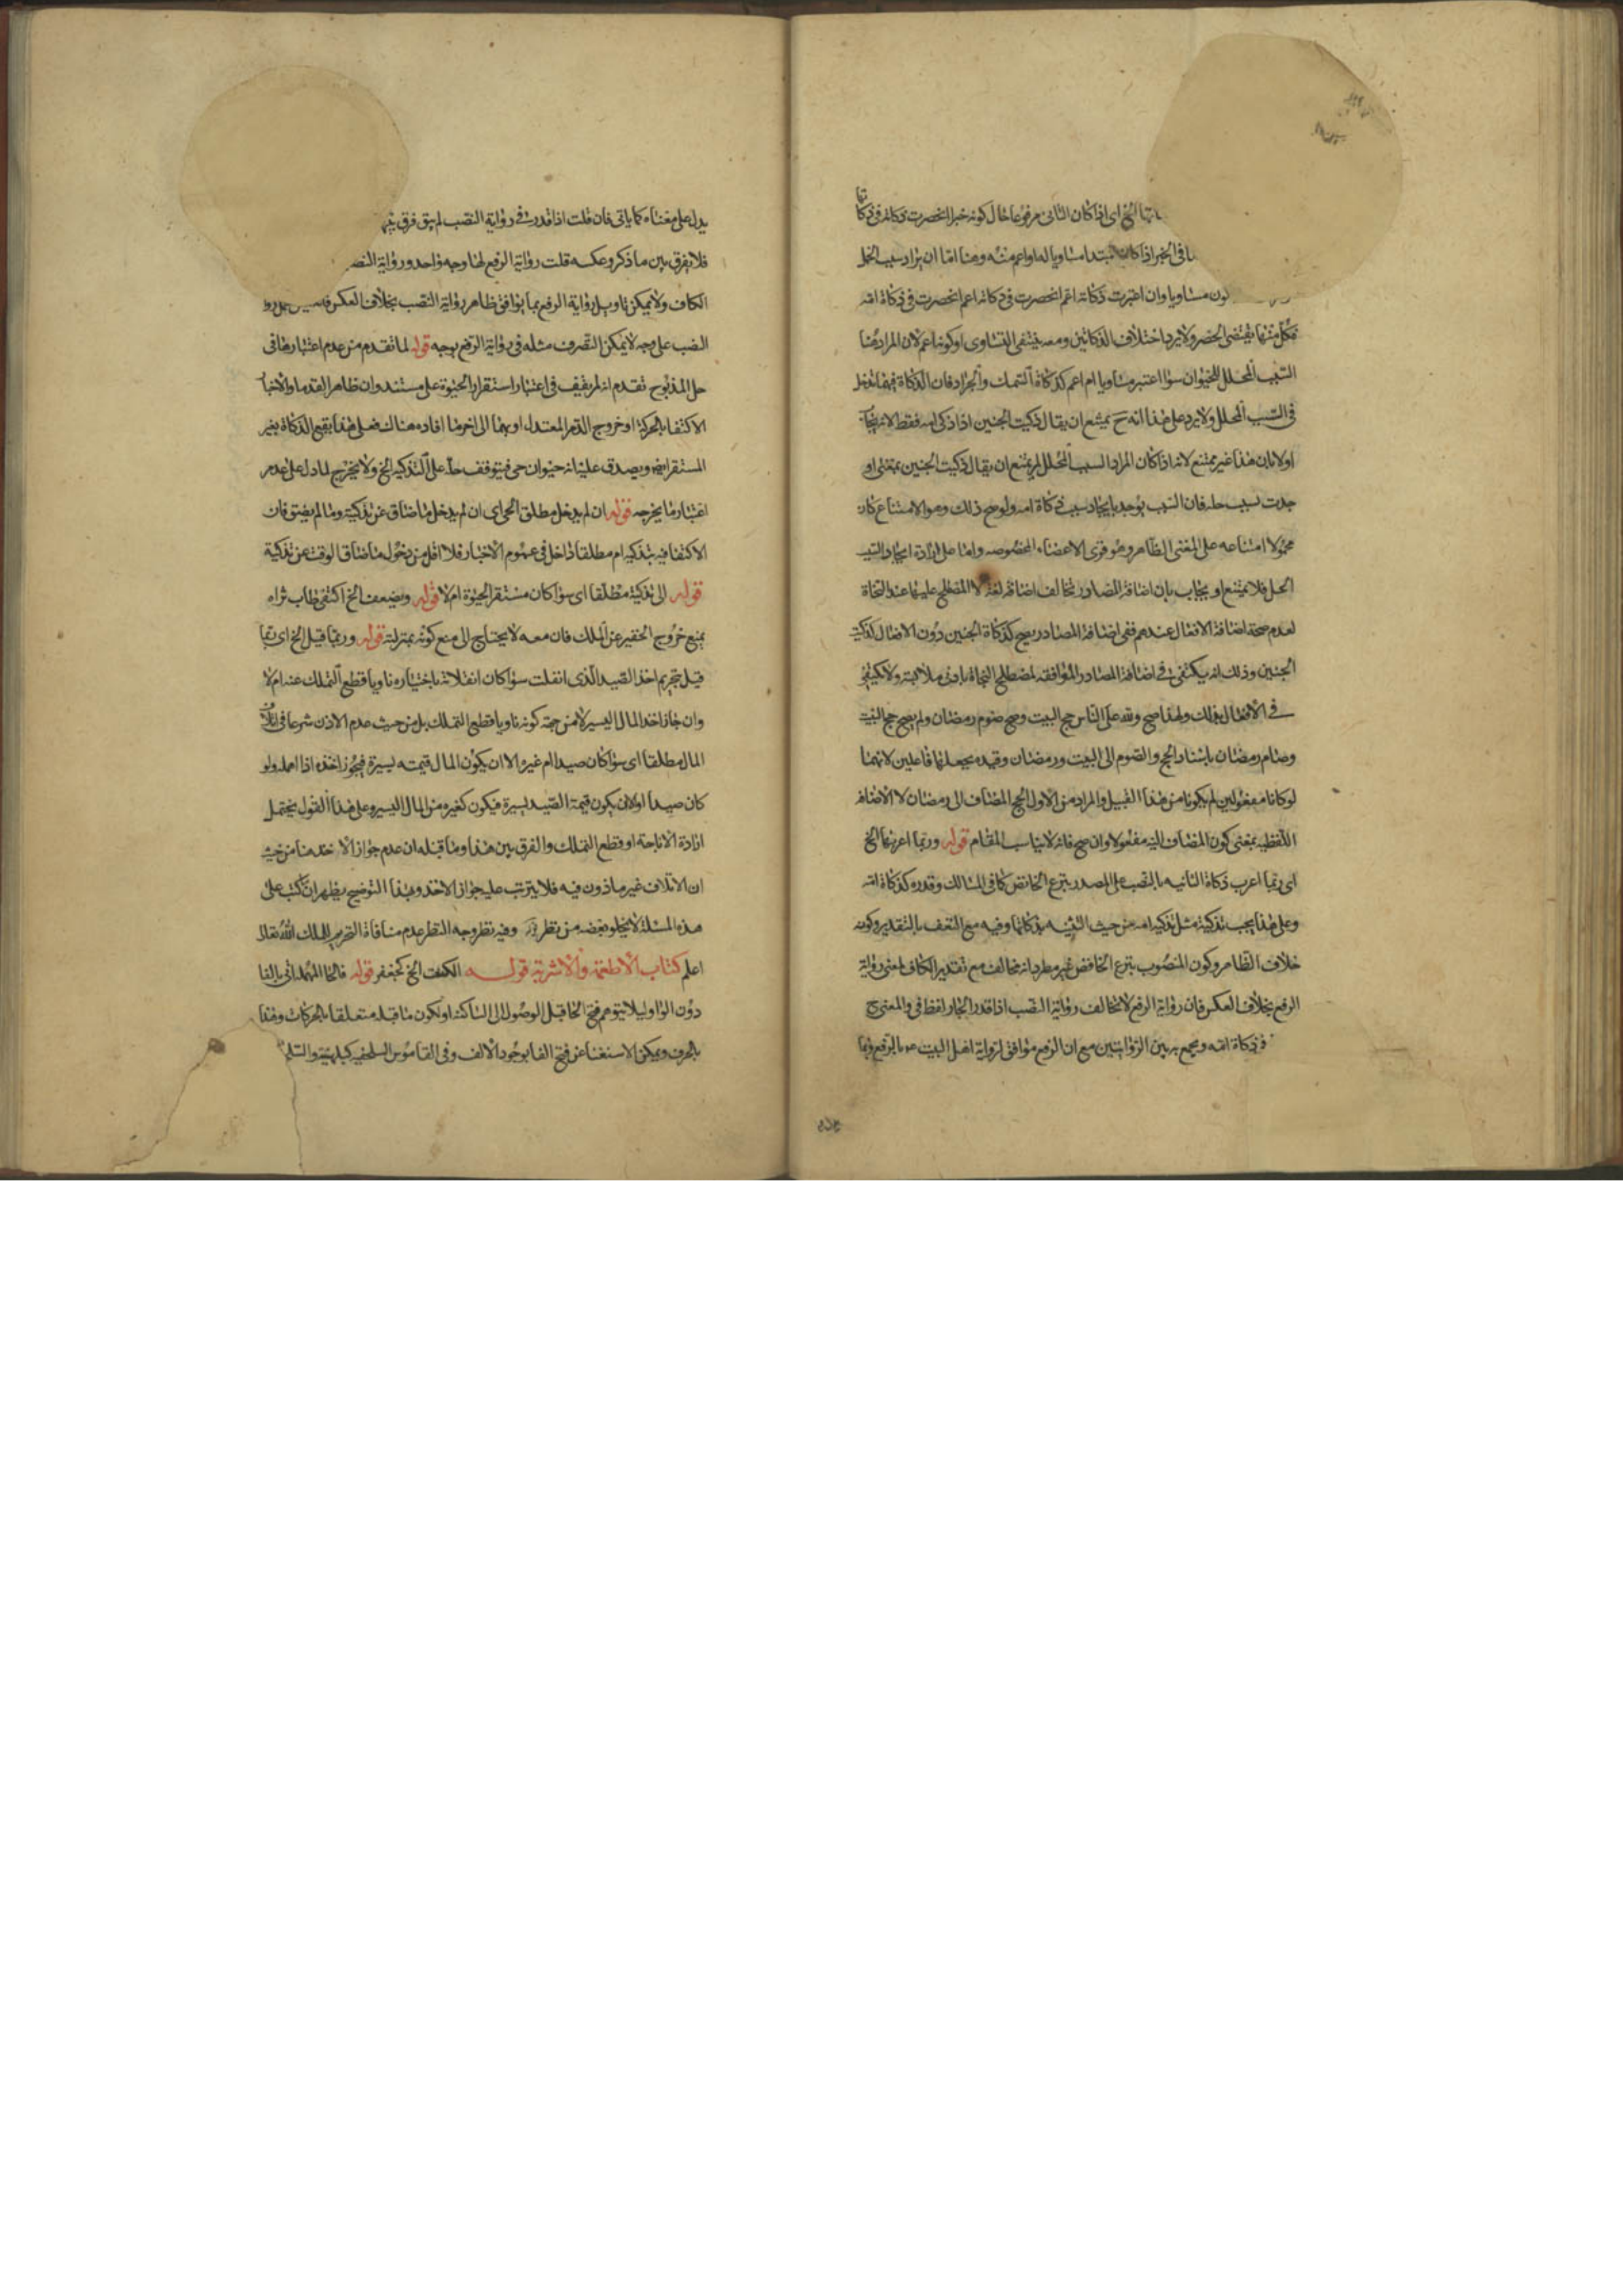 الخ اى اذا كان الثانى مرفوعا حال كونه خبرا انحصرت ذكاته فى ذكا
تها
فى الخبر اذا كان المبتدا مساويا له او اعم منه وهنا اما ان يراد سبب الحل
كون مساويا وان اعتبرت ذكاته اعم انحصرت فى ذكاته اعم انحصرت فى ذكاة امه
فكل منهما يقتضى الحصر ولا يرد اختلاف الذكاتين ومعه ينتفى التساوى او كونه اعم لان المراد هنا
السبب المحلل للحيوان سواء اعتبر مساويا ام اعم كذكاة السمك والجراد فان الذكاة فيهما تدخل
فى السبب المحلل ولا يرد على هذا انه ح يمتنع ان يقال ذكيت الجنين اذا ذكى امه فقط لانه
اولا بان هذا غير ممتنع لانه اذا كان المراد السبب المحلل لم يمتنع ان يقال ذكيت الجنين بمعنى او
جدت سبب حله فان السبب يوجد بايجاد سبب ذكاة امه ولو صح ذلك وهو الامتناع كان
محمولا امتناعه على المعنى الظاهر وهو فرى الاعضاء المخصوصه واما على ارادة ايجاد السبب
الحل فلا يمتنع او يجاب بان اضافة المصادر تخالف اضافة لغة لا المصطلح عليها عند النحاة
لعدم صحة اضافة الافعال عندهم ففى اضافة المصادر يصح كذكاة الجنين دون الافعال كذكيت
الجنين وذلك انه يكتفى فى اضافة المصادر الموافقه لمصطلح النحاة بادنى ملابسة ولا يكتفى
فى الافعال بذلك ولهذا صح ولله على الناس حج البيت وصح صوم رمضان ولم يصح حج البيت
وصام رمضان باسناد الحج والصوم الى البيت ورمضان وقيد بجعلهما فاعلين لانهما
لو كانا مفعولين لم يكونا من هذا القبيل والمراد من الاول الحج المضاف الى رمضان لا الاضافة
اللفظيه بمعنى كون المضاف اليه مفعولا وان صح فانه لا يناسب المقام قوله وربما اعربها الخ
اى ربما اعرب ذكاة الثانيه بالنصب على المصدر بنزع الخافض كما فى المسالك وقدره كذكاة امه
وعلى هذا يجب تذكيته مثل تذكية امه من حيث بذكاتها وفيه مع التعسف بالتقدير وكونه
خلاف الظاهر وكون المنصوب بنزع الخافض غير مطرد انه مخالف مع تقدير الكاف لمعنى رواية
الرفع بخلاف العكس فان رواية الرفع لا تخالف رواية النصب اذا قدر الجار لفظ فى والمعنى ح
فى ذكاة امه ويجمع به بين الروايتين مع ان الرفع موافق لرواية اهل البيت بالرفع وبما
يدل على معناه كما ياتى فان قلت اذا قدرت فى رواية النصب لم يبق فرق
فلا يفرق بين ما ذكر وعكسه قلت رواية الرفع لها وجه واحد ورواية النصب
الكاف ولا يمكن تاويل رواية الرفع بما يوافق ظاهر رواية النصب بخلاف العكس
النصب على وجه لا يمكن التصرف مثله فى رواية الرفع بوجه قوله لما تقدم من عدم اعتبارها فى
حل المذبوح تقدم انه لم يقف فى اعتبار استقرار الحيوة على مستند وان ظاهر القدما والاخبار
الاكتفا بالحركة او خروج الدم المعتدل او بهما الى اخر ما افاده هناك فعلى هذا يقع الذكاة بغير
المستقر ايضا ويصدق عليه انه حيوان حى فيتوقف حله على التذكيه الخ ولا يخرج لما دل على عدم
اعتبار ما يخرجه قوله ان لم يدخل مطلق الحى اى ان لم يدخل ما ضاق عن تذكيته وما لم يضق فان
الاكتفا فيه بتذكيه ام مطلقا داخل فى عموم الاخبار فلا اقل من دخول ما ضاق الوقت عن تذكية
قوله الى تذكية مطلقا اى سواء كان مستقر الحيوة ام لا قوله ويضعف الخ اكتفى طاب ثراه
بمنع خروج الحقير عن الملك فان معه لا يحتاج الى منع كونه بمنزلته قوله وربما قيل الخ اى ربما
قيل بتحريم اخذ الصيد الذى انفلت سواء كان انفلاته باختياره ناويا قطع التملك عنه ام لا
وان جاز اخذ المال اليسير لا من جهة كونه ناويا قطع التملك بل من حيث عدم الاذن شرعا فى اتلاف
المال مطلقا اى سواء كان صيدا ام غيره الا ان يكون المال قيمته يسيرة فيجوز اخذه اذا اهمله ولو
كان صيدا اولا ان يكون قيمة الصيد يسيرة فيكون كغيره من المال اليسير وعلى هذا القول يحتمل
ارادة الاباحة او قطع التملك والفرق بين هذا وما قبله ان عدم جواز الاخذ هنا من حيث
ان الاتلاف غير ماذون فيه فلا يترتب عليه جواز الاخذ وبهذا التوضيح يظهر ان كتب على
هذه المسئلة لا يخلو بعضه من نظر وفيه نظر وجه النظر عدم منافاة التحريم للملك الله تعالى
اعلم كتاب الاطعمة والاشربة قوله الكنعت الخ كجعفر قوله فالحا المهملة اتى بالفا
دون الواو ليلا يتوهم فتح الحا قبل الوصول الى الساكنة او لكون ما قبله متعلقا بالحركات وهذا
بالحرف ويمكن الاستغنا عن فتح الفا بوجود الالف وفى القاموس السلحفيه كبلهنية والسلم